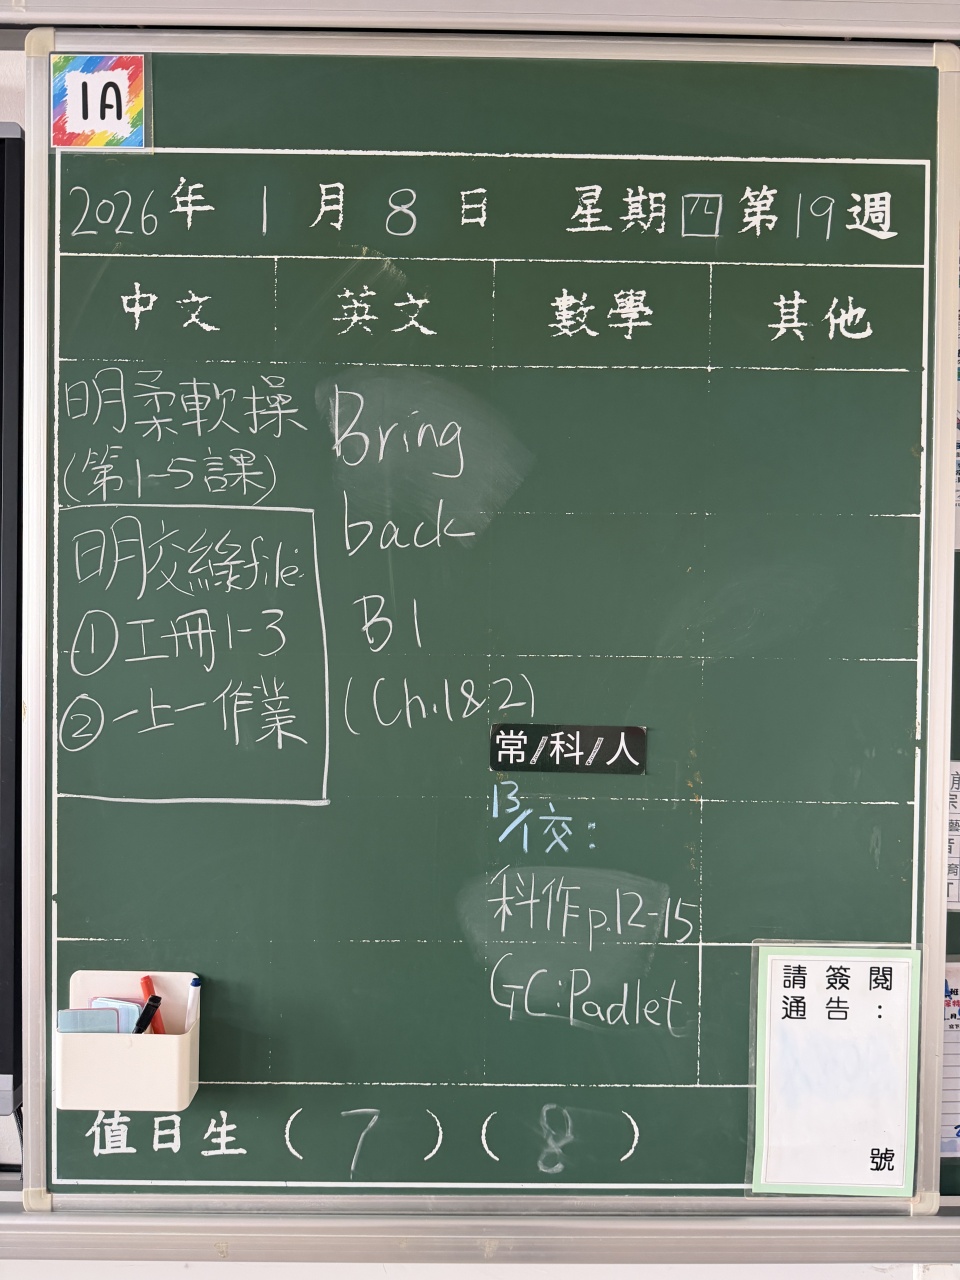 1A
2026年 1月 8日 星期四 第19週
中文 英文 數學 其他
明柔軟操
(第1-5課)
明交綠file:
①工冊1-3
②一上一作業
Bring
back
B1
(Ch.1&2)
常/科/人
13/1交:
科作p.12-15
GC:Padlet
請簽閱
通告:
號
值日生(7)(8)